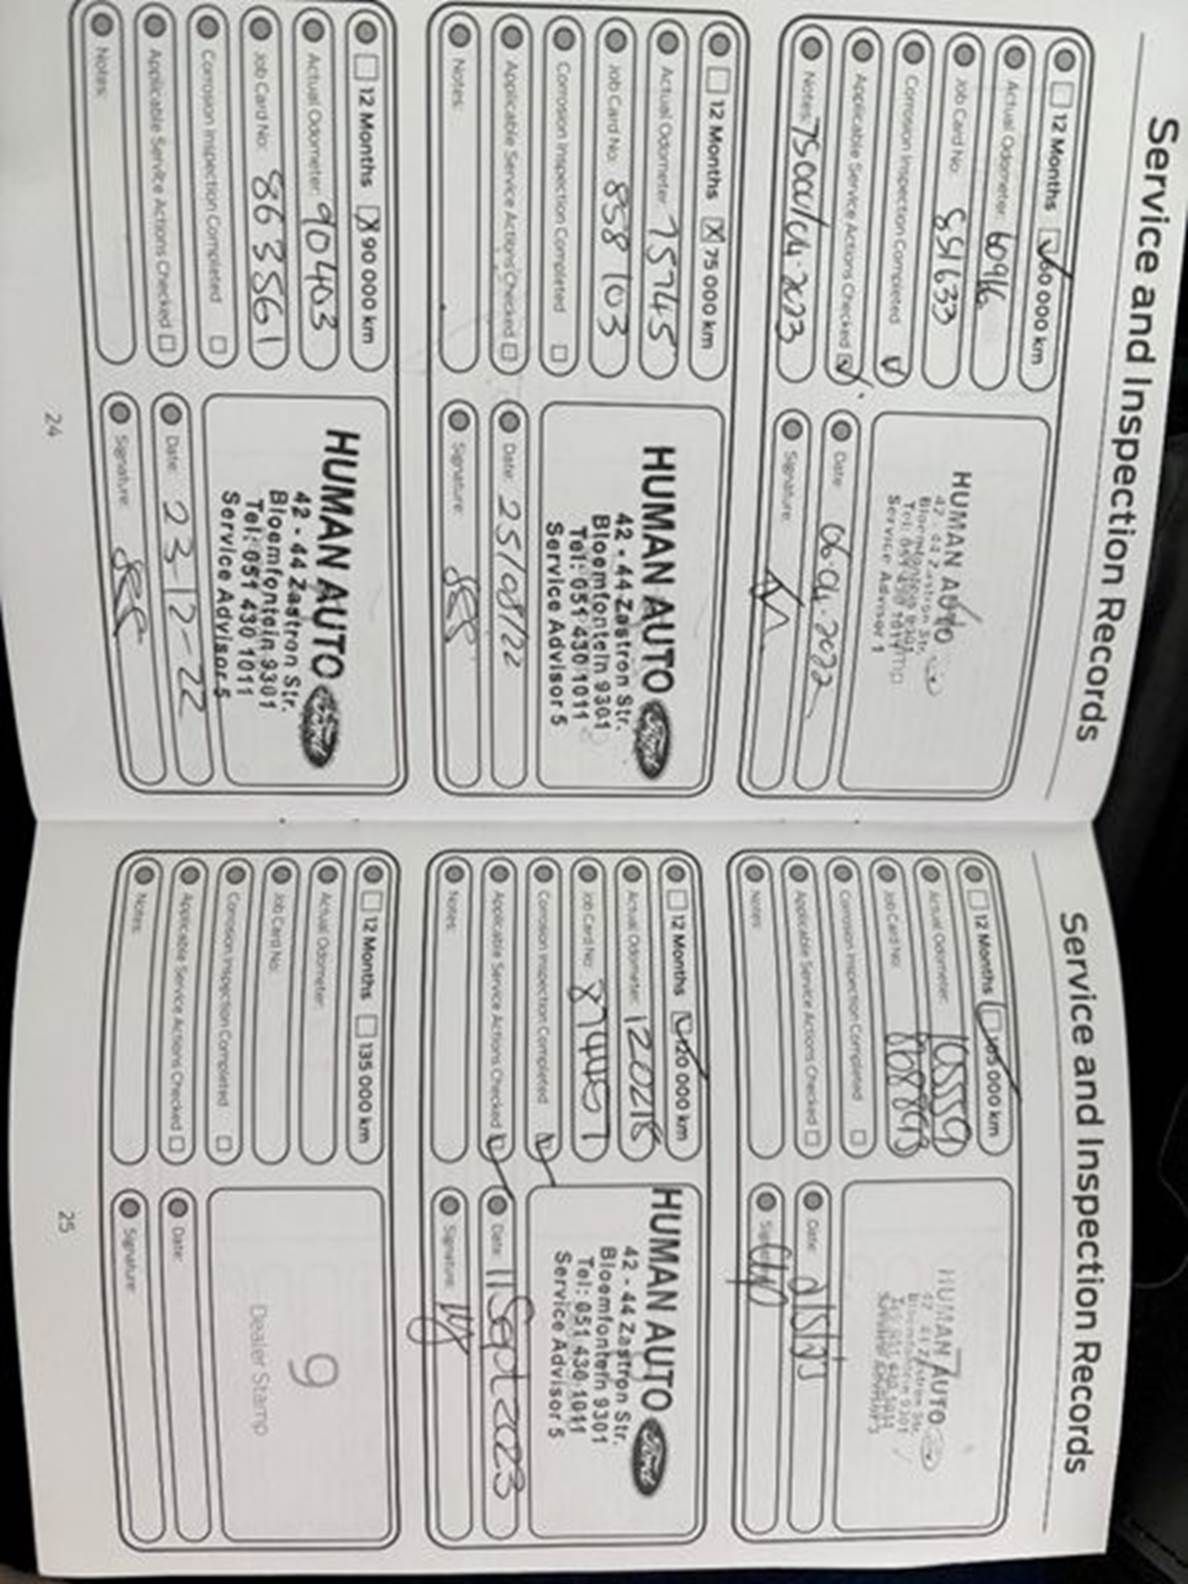 Service and Inspection Records
12 Months 60 000 km
Actual Odometer: 60916
Job Card No: 851633
Corrosion Inspection Completed
Applicable Service Actions Checked
Notes: 75000/04.2023
HUMAN AUTO
42 - 44 Zastron Str.
Bloemfontein 9301
Tel: 051 430 1011
Service Advisor 1
Date: 06.04.2022
Signature:
12 Months X 75 000 km
Actual Odometer: 75745
Job Card No: 858103
Corrosion Inspection Completed
Applicable Service Actions Checked
Notes:
HUMAN AUTO Ford
42 - 44 Zastron Str.
Bloemfontein 9301
Tel: 051 430 1011
Service Advisor 5
Date: 25/08/22
Signature:
12 Months X 90 000 km
Actual Odometer: 90403
Job Card No: 863561
Corrosion Inspection Completed
Applicable Service Actions Checked
Notes:
HUMAN AUTO Ford
42 - 44 Zastron Str.
Bloemfontein 9301
Tel: 051 430 1011
Service Advisor 5
Date: 23-12-22
Signature:
24
Service and Inspection Records
12 Months 105 000 km
Actual Odometer: 105559
Job Card No: 868893
Corrosion Inspection Completed
Applicable Service Actions Checked
Notes:
7
HUMAN AUTO
42 - 44 Zastron Str.
Bloemfontein 9301
Date:
Signature:
12 Months 120 000 km
Actual Odometer: 120218
Job Card No: 874457
Corrosion Inspection Completed
Applicable Service Actions Checked
Notes:
HUMAN AUTO Ford
42 - 44 Zastron Str.
Bloemfontein 9301
Tel: 051 430 1011
Service Advisor 5
Date: 11 Sept 2023
Signature:
12 Months 135 000 km
Actual Odometer:
Job Card No:
Corrosion Inspection Completed
Applicable Service Actions Checked
Notes:
9
Dealer Stamp
Date:
Signature:
25